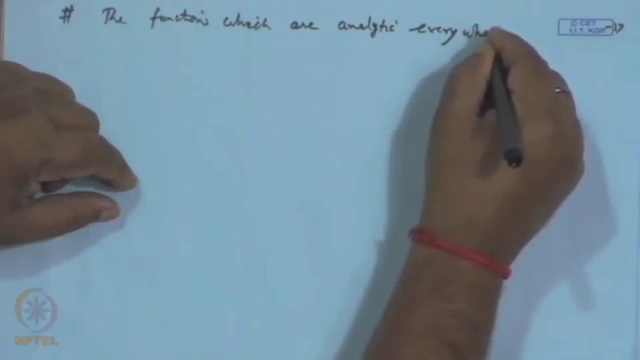 # The functions which are analytic everywhe
© CET
I.I.T. KGP
NPTEL